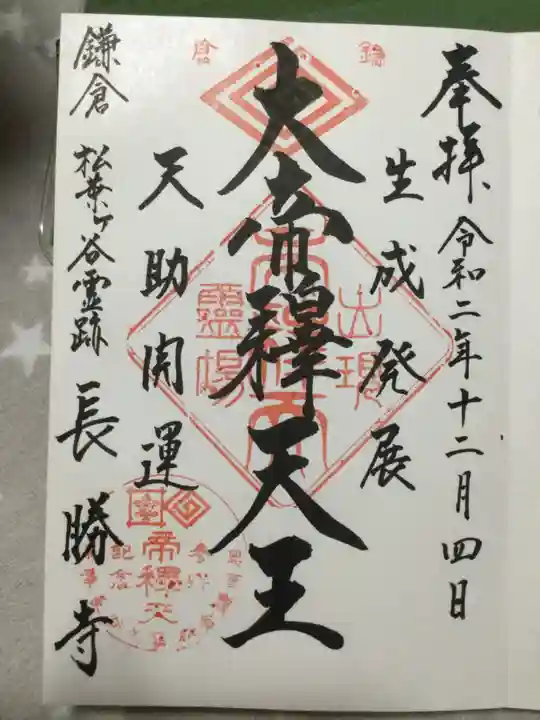 奉拝 令和二年十二月四日
生成発展
大帝釋天王
天助開運
鎌倉 松葉ヶ谷霊跡 長勝寺
鎌倉
出現
靈場
帝釋天